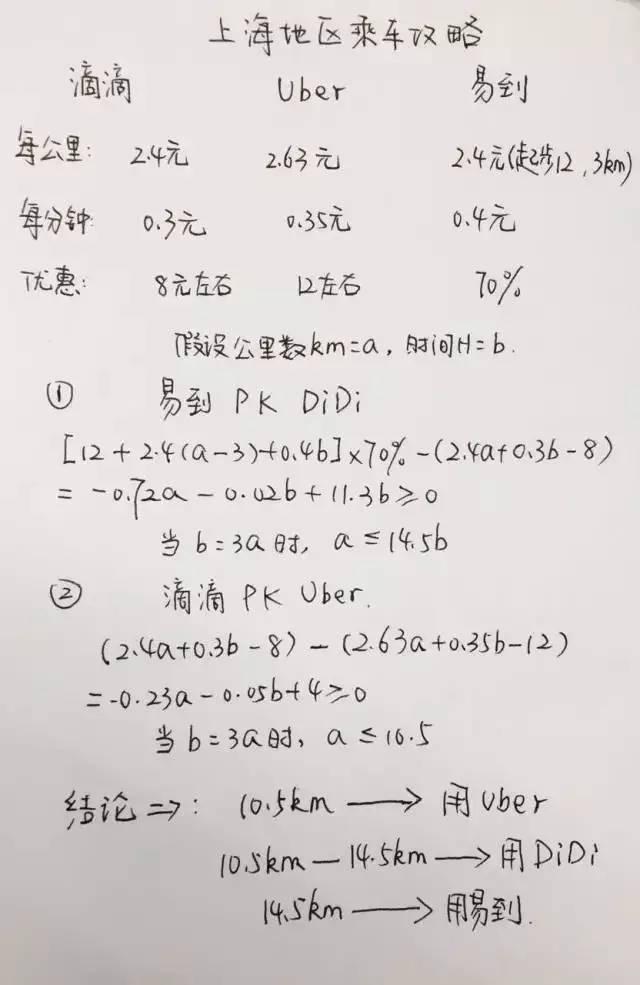 上海地区乘车攻略
滴滴 Uber 易到
每公里: 2.4元 2.63元 2.4元(起步12, 3km)
每分钟: 0.3元 0.35元 0.4元
优惠: 8元左右 12左右 70%
假设公里数km=a, 时间H=b.
① 易到 PK DiDi
[12+2.4(a-3)+0.4b]×70%-(2.4a+0.3b-8)
=-0.72a-0.02b+11.3b≥0
当b=3a时, a≤14.5b
② 滴滴 PK Uber.
(2.4a+0.3b-8)-(2.63a+0.35b-12)
=-0.23a-0.05b+4≥0
当b=3a时, a≤10.5
结论=>: 10.5km→用Uber
10.5km-14.5km→用DiDi
14.5km→用易到.